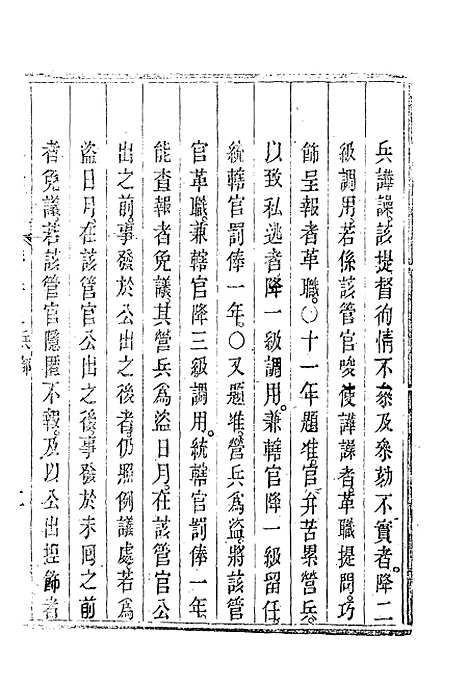 兵譁譟。該提督徇情不叅及叅劾不實者。降二
級調用。若係該管官唆使譁譟者。革職提問。巧
飾呈報者革職。○十一年題准。官弁苦累營兵。
以致私逃者。降一級調用。兼轄官降一級留任。
統轄官罰俸一年。○又題准。營兵為盜。將該管
官革職。兼轄官降三級調用。統轄官罰俸一年。
能查報者免議。其營兵為盜日月。在該管官公
出之前。事發於公出之後者。仍照例議處。若為
盜日月。在該管官公出之後。事發於未囘之前
者免議。若該管官隱匿不報。及以公出揑飾者